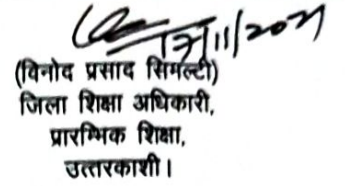 17/11/2021
(विनोद प्रसाद सिमल्टी)
जिला शिक्षा अधिकारी,
प्रारम्भिक शिक्षा,
उत्तरकाशी।